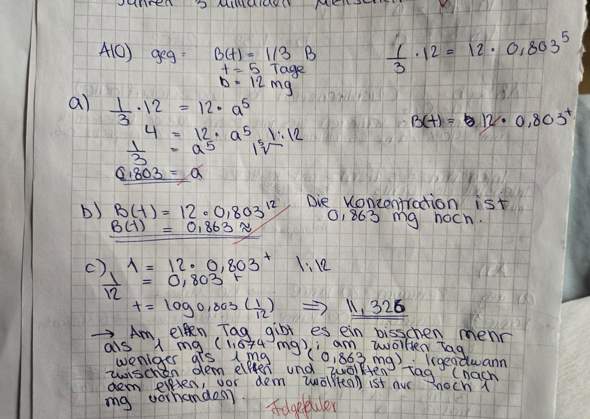 Jahren 3 Milliarden Menschen
A10) geg: B(t) = 1/3 B
t = 5 Tage
b = 12 mg
1/3 · 12 = 12 · 0,803^5
a) 1/3 · 12 = 12 · a^5
4 = 12 · a^5 | : 12
1/3 = a^5 | ⁵√
0,803 = a
B(t) = 12 · 0,803^t
b) B(t) = 12 · 0,803^12
B(t) = 0,863 ≈
Die Konzentration ist
0,863 mg hoch.
c) 1 = 12 · 0,803^t | : 12
1/12 = 0,803^t
t = log 0,803 (1/12) ⇒ 11,326
→ Am elften Tag gibt es ein bisschen mehr
als 1 mg (1,074 mg), am zwölften Tag
weniger als 1 mg (0,863 mg). Irgendwann
zwischen dem elften und zwölften Tag (nach
dem elften, vor dem zwölften) ist nur noch 1
mg vorhanden.
Folgefehler